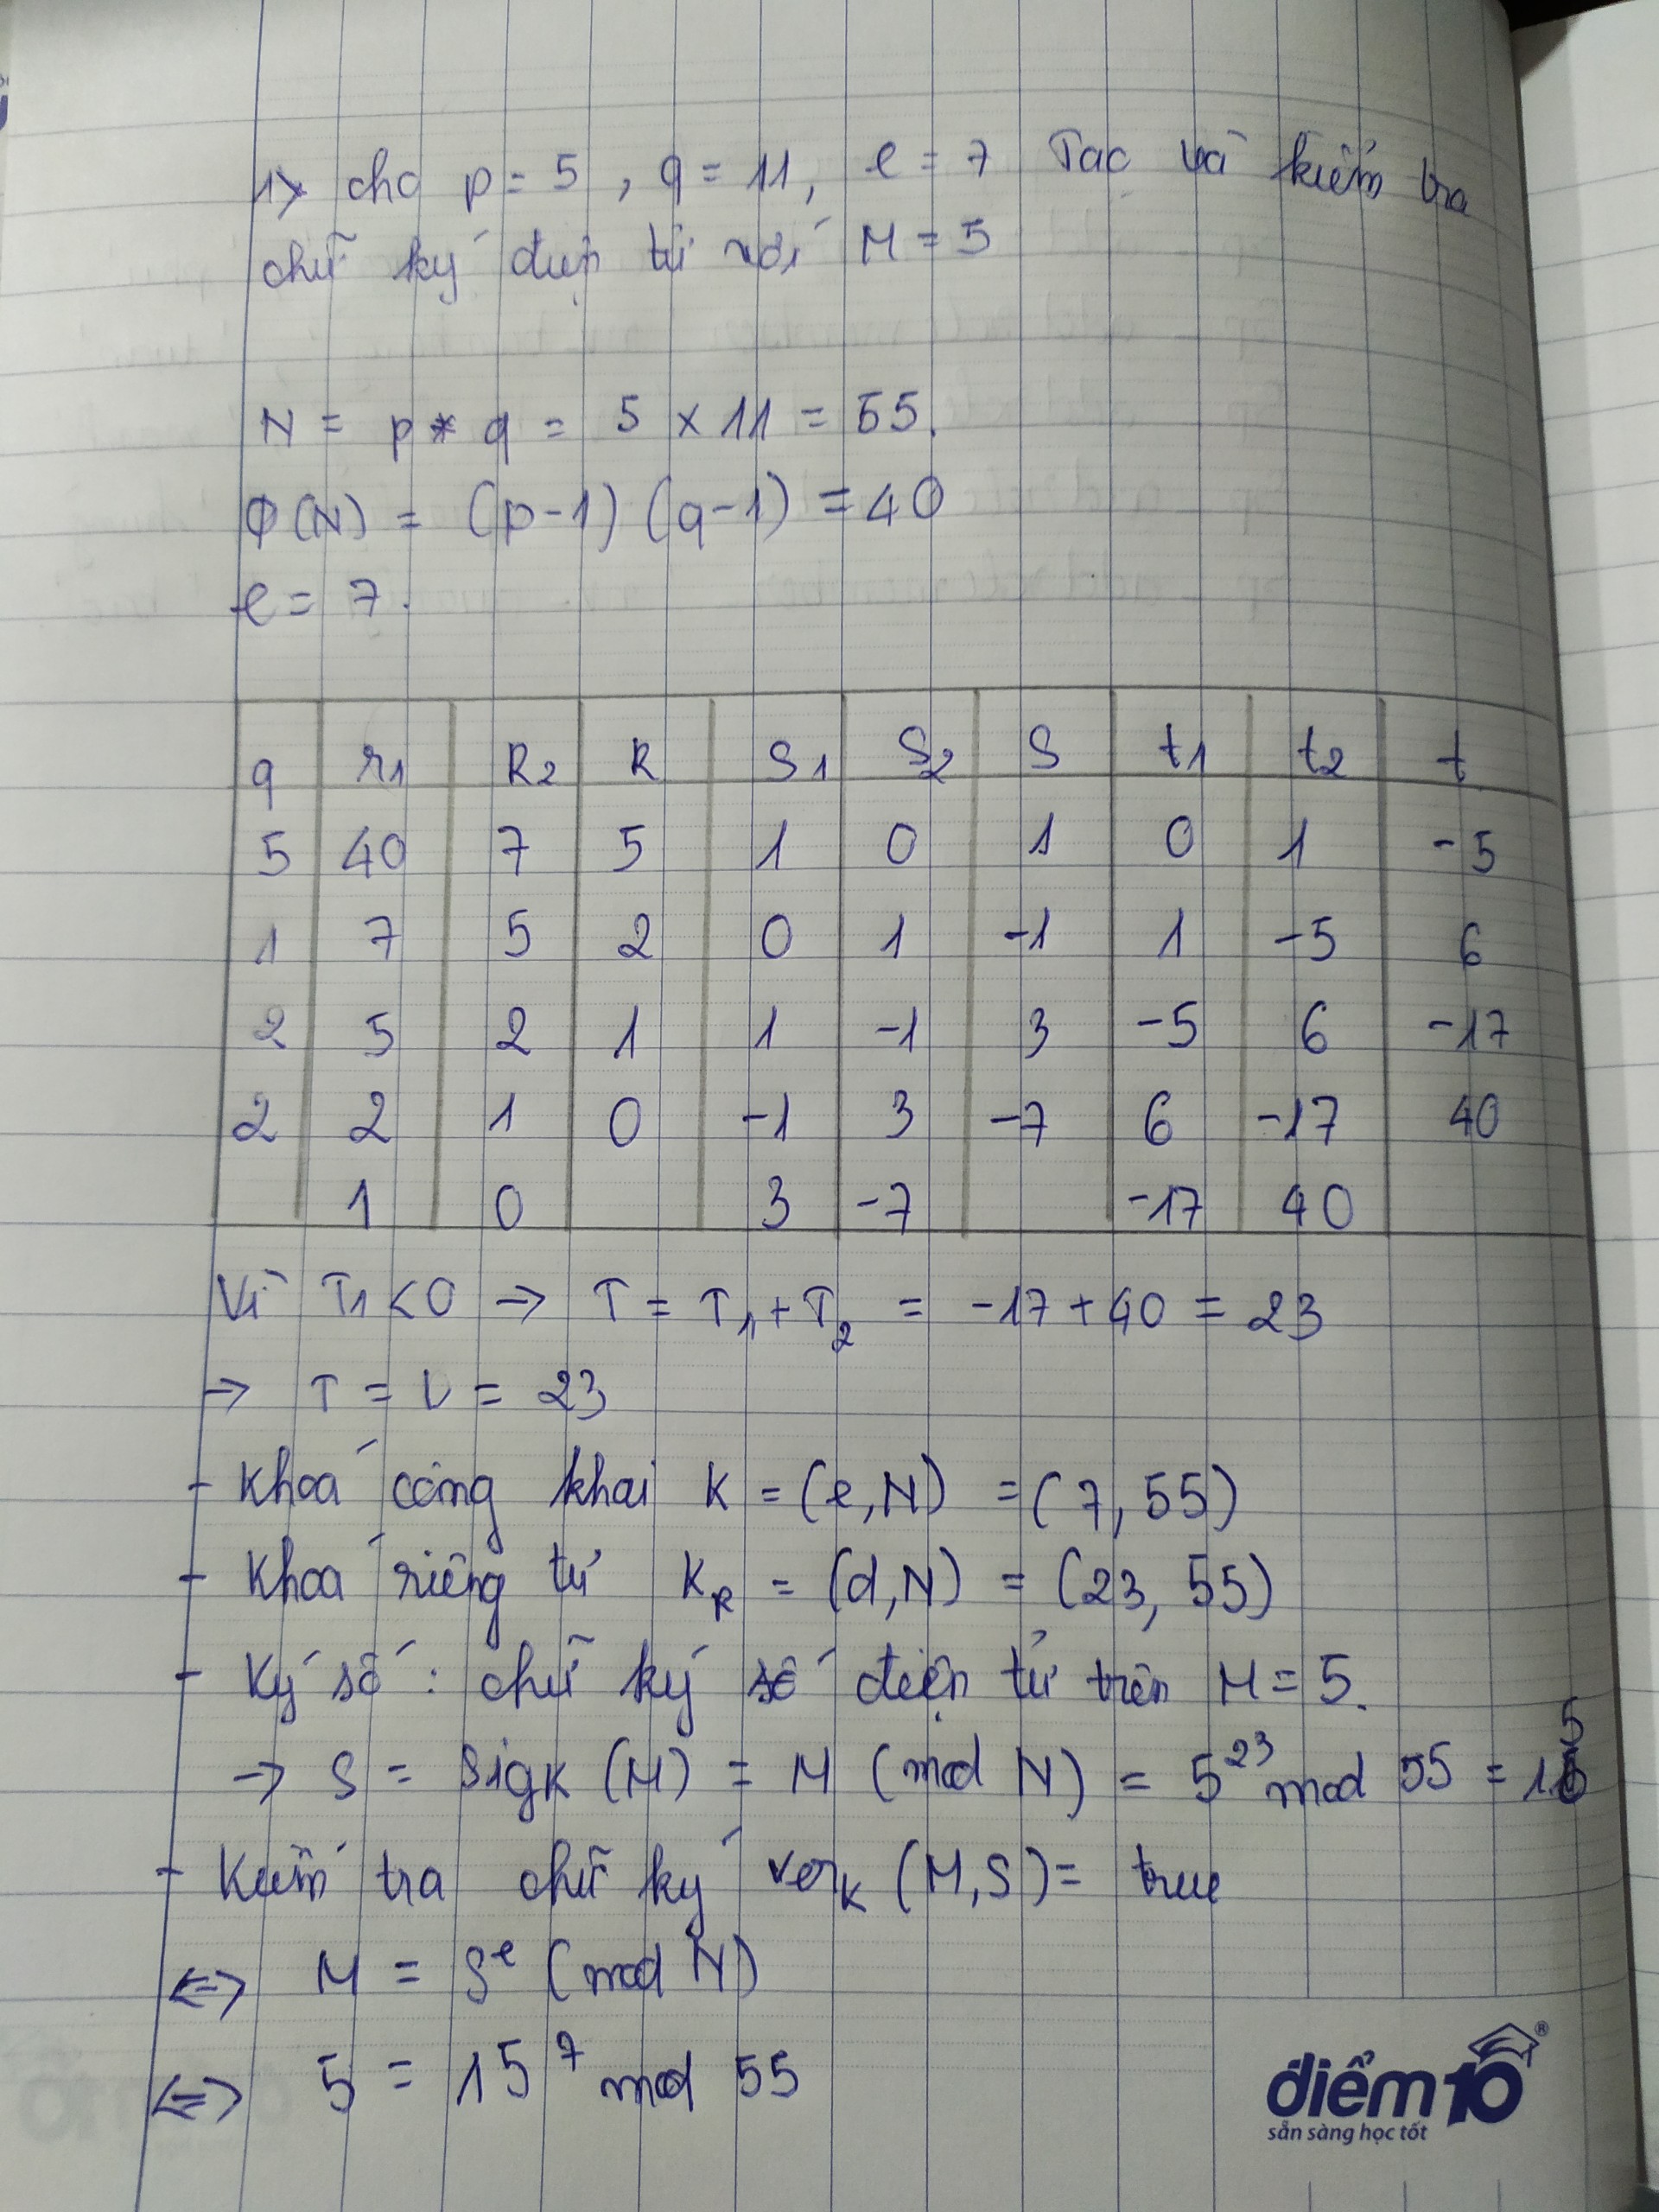 1> cho p = 5 , q = 11, e = 7 Tạo và kiểm tra
chữ ký điện tử với M = 5
N = p * q = 5 x 11 = 55.
Φ(N) = (p-1) (q-1) = 40
e = 7.
q r1 R2 R S1 S2 S t1 t2 t
5 40 7 5 1 0 1 0 1 -5
1 7 5 2 0 1 -1 1 -5 6
2 5 2 1 1 -1 3 -5 6 -17
2 2 1 0 -1 3 -7 6 -17 40
1 0 3 -7 -17 40
Vì T1 < 0 → T = T1 + T2 = -17 + 40 = 23
→ T = = 23
- Khoá công khai K = (e,N) = (7, 55)
- Khoá riêng tư KR = (d,N) = (23, 55)
- Ký số : chữ ký số điện tử trên M = 5.
→ S = SigK (M) = M (mod N) = 5^23 mod 55 = 15
- Kiểm tra chữ ký verK (M,S) = true
<=> M = S^e (mod N)
<=> 5 = 15^7 mod 55
điểm10®
sẵn sàng học tốt